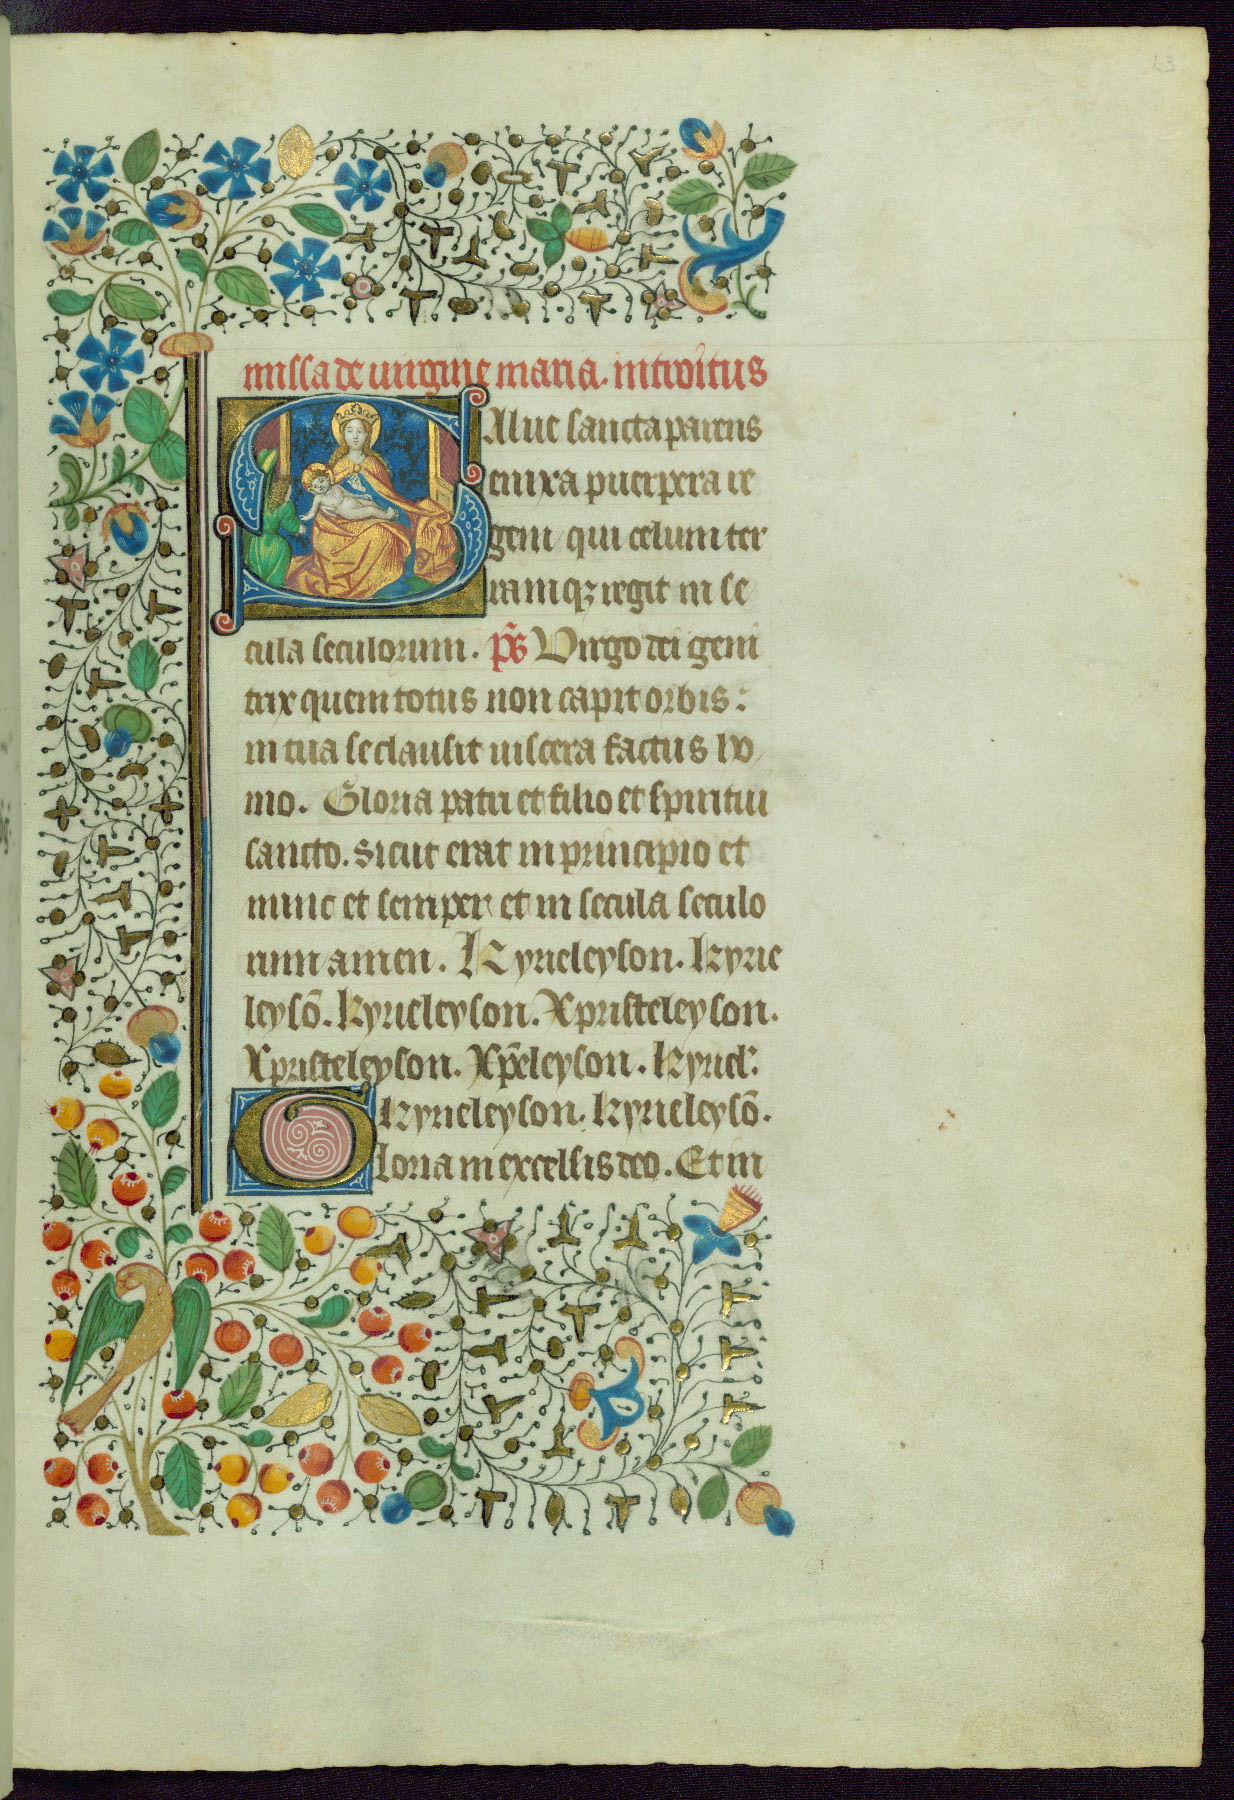 13
missa de uirgine maria. introitus
Salue sancta parens
enixa puerpera re
gem qui celum ter
ramqꝫ regit in se
cula seculorum. p̄s Uirgo dei geni
trix quem totus non capit orbis:
in tua se clausit uiscera factus ho
mo. Gloria patri et filio et spiritui
sancto. Sicut erat in principio et
nunc et semper et in secula seculo
rum amen. Kyrieleyson. Kyrie
leysō. Kyrieleyson. Xpristeleyson.
Xpristeleyson. Xp̄eleyson. Kyriel:
Kyrieleyson. Kyrieleysō.
Gloria in excelsis deo. Et in